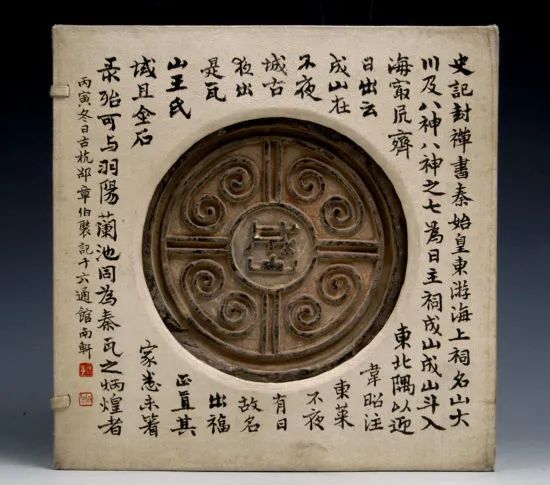 史記封禪書秦始皇東游海上祠名山大
川及八神八神之七為日主祠成山成山斗入
海㝡凥齊東北隅以迎
日出云韋昭注
成山在東萊
不夜不夜
城古有日
夜出故名
是瓦出福
山王氏正真其
域且金石家悉未箸
录殆可与羽陽蘭池同為秦瓦之炳煌者
丙寅冬日古杭邵章伯褧記于六通館南軒
成山